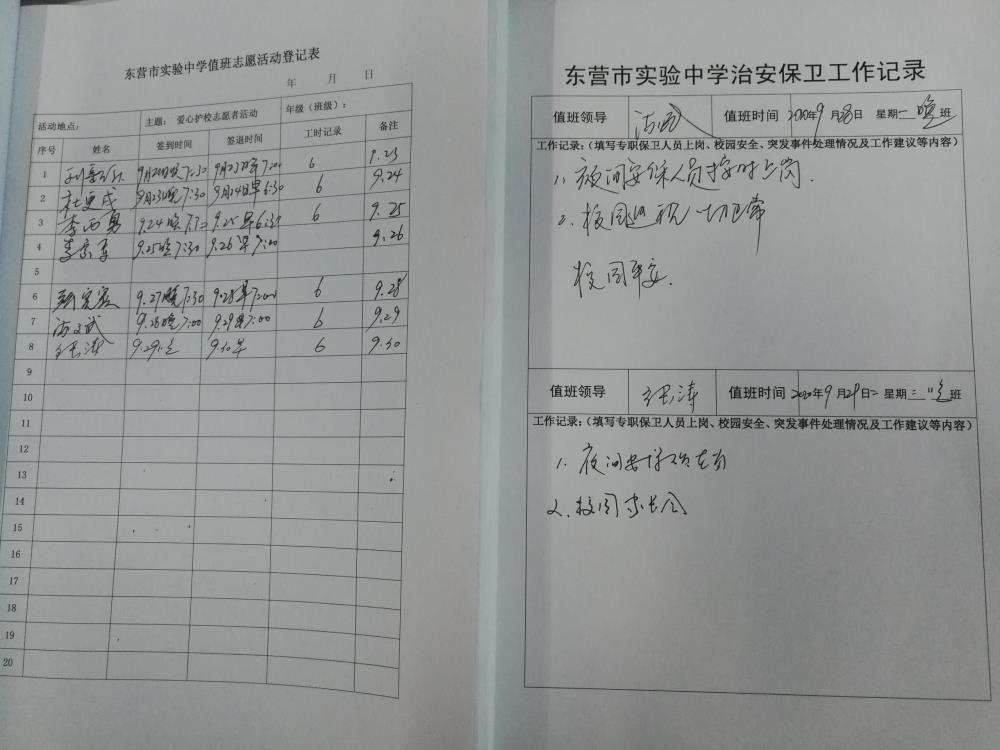 东营市实验中学值班志愿活动登记表
年 月 日
活动地点： 主题： 爱心护校志愿者活动 年级（班级）：
序号 姓名 签到时间 签退时间 工时记录 备注
1 7:30 7:00 6 9.23
2 9月23日晚7:30 9月24日早6:30 6 9.24
3 李西勇 9.24晚7:30 9.25早6:30 6 9.25
4 9.25晚7:30 9.26早7:00 9.26
5
6 9.27晚7:30 9.28早7:00 6 9.28
7 9.28晚7:00 9.29早7:00 6 9.29
8 张涛 9.29晚 9.30早 6 9.30
9
10
11
12
13
14
15
16
17
18
19
20
东营市实验中学治安保卫工作记录
值班领导 值班时间 2020年9月28日 星期一 晚班
工作记录：（填写专职保卫人员上岗、校园安全、突发事件处理情况及工作建议等内容）
1、夜间安保人员按时上岗.
2、校园巡视一切正常
校园平安.
值班领导 张涛 值班时间 2020年9月29日 星期二 晚班
工作记录：（填写专职保卫人员上岗、校园安全、突发事件处理情况及工作建议等内容）
1、夜间安保人员在岗
2、校园安全